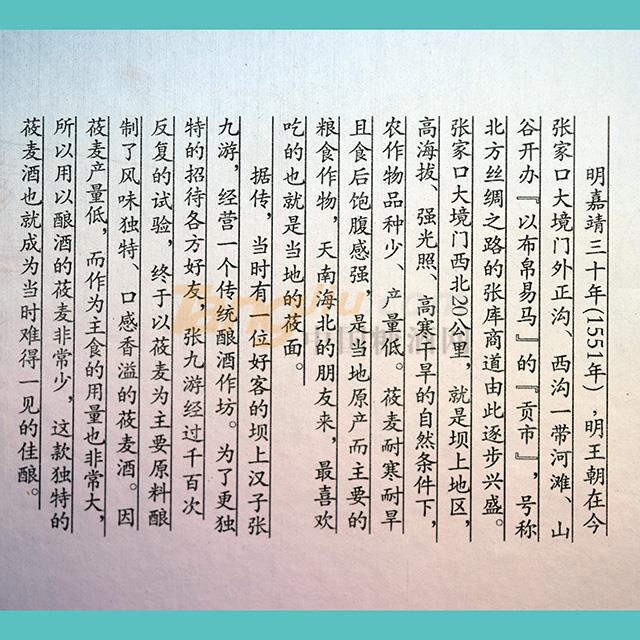 明嘉靖三十年(1551年)，明王朝在今
张家口大境门外正沟、西沟一带河滩、山
谷开办『以布帛易马』的『贡市』，号称
北方丝绸之路的张库商道由此逐步兴盛。
张家口大境门西北20公里，就是坝上地区，
高海拔、强光照、高寒干旱的自然条件下，
农作物品种少、产量低。莜麦耐寒耐旱
且食后饱腹感强，是当地原产而主要的
粮食作物，天南海北的朋友来，最喜欢
吃的也就是当地的莜面。
据传，当时有一位好客的坝上汉子张
九游，经营一个传统酿酒作坊。为了更独
特的招待各方好友，张九游经过千百次
反复的试验，终于以莜麦为主要原料酿
制了风味独特、口感香溢的莜麦酒。因
莜麦产量低，而作为主食的用量也非常大，
所以用以酿酒的莜麦非常少，这款独特的
莜麦酒也就成为当时难得一见的佳酿。